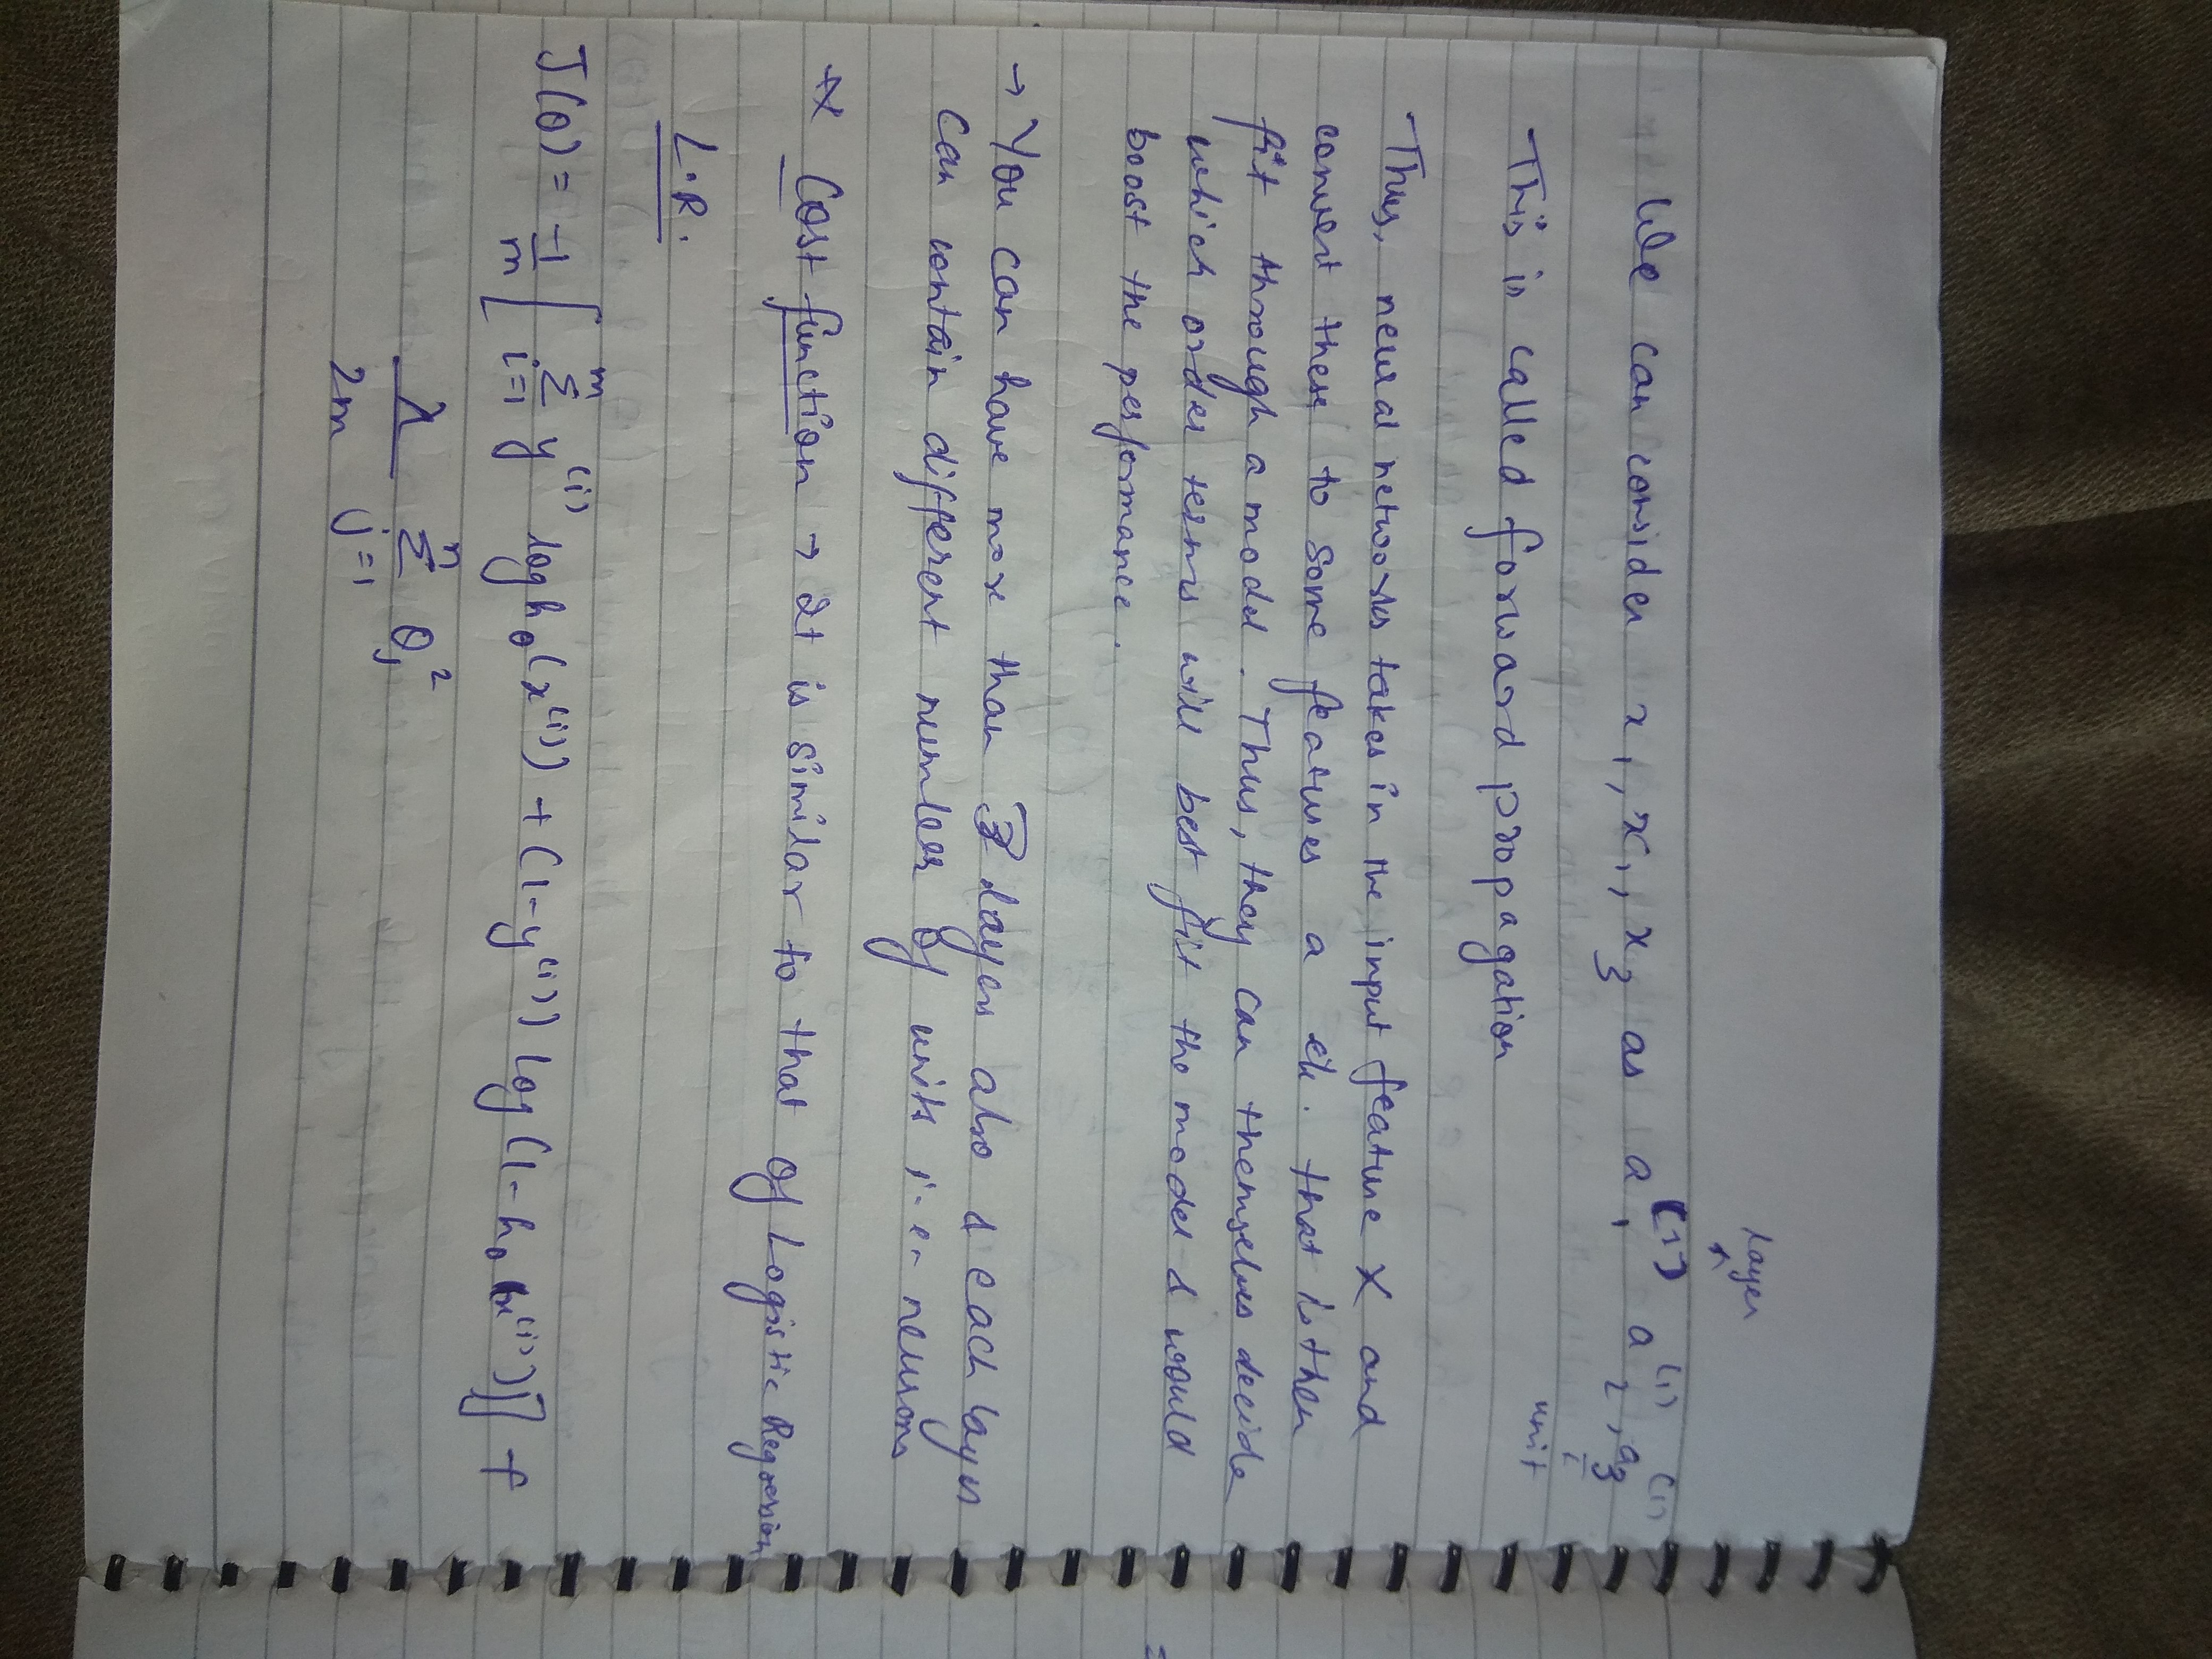 layer
We can consider x₁, x₁, x₃ as a₁⁽¹⁾ a₂⁽¹⁾, a₃⁽¹⁾
unit
This is called forward propagation
Thus, neural networks takes in the input feature X and
convert these to some features a etc. that is then
fit through a model. Thus, they can themselves decide
which order terms will best fit the model & would
boost the performance.
→ You can have more than 3 layers also & each layer
can contain different number of units i.e. neurons
* Cost function → It is similar to that of Logistic Regression
L.R.
J(θ) = -1/m [ Σᵢ₌₁ᵐ y⁽ⁱ⁾ log h_θ(x⁽ⁱ⁾) + (1-y⁽ⁱ⁾) log(1-h_θ(x⁽ⁱ⁾)) ] +
λ/2m Σⱼ₌₁ⁿ θⱼ²